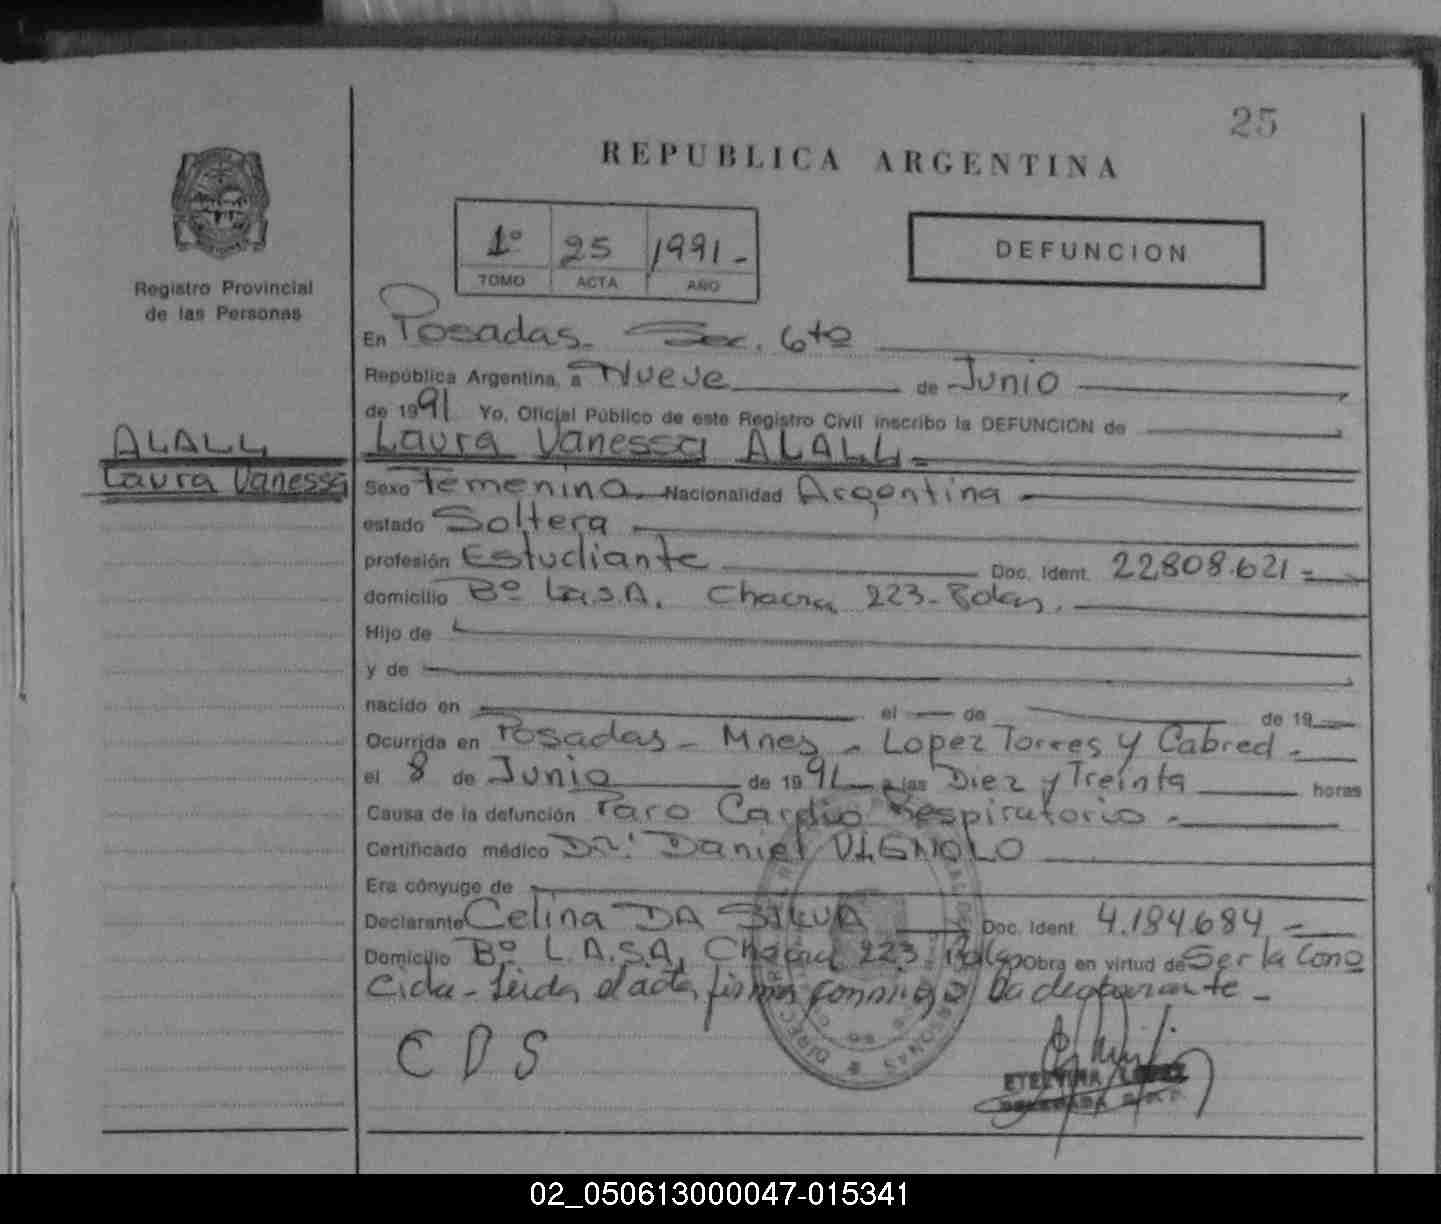 25
REPUBLICA ARGENTINA
1º 25 1991-
TOMO ACTA AÑO
DEFUNCION
Registro Provincial
de las Personas
En Posadas- Sec. 6ta
República Argentina, a Nueve de Junio
de 1991 Yo, Oficial Público de este Registro Civil inscribo la DEFUNCION de
ALALL
Laura Vanessa
Laura Vanessa ALALL-
Sexo Femenina Nacionalidad Argentina
estado Soltera
profesión Estudiante Doc. Ident. 22808.621=
domicilio Bº La.S.A. Chacra 223-
Hijo de
y de
nacido en el de de 19
Ocurrida en Posadas - Mnes - Lopez Torres y Cabred-
el 8 de Junio de 1991 a las Diez y Treinta horas
Causa de la defunción Paro Cardio Respiratorio-
Certificado médico Dr: Daniel VIGNOLO
Era cónyuge de
Declarante Celina DA SILVA Doc. Ident. 4.184.684=
Domicilio Bº L.A.S.A, Chacra 223 Obra en virtud de Ser la Cono
cida- Leida el acta firma conmigo la declarante-
CDS
ETELVINA LOPEZ
DELEGADA
02_050613000047-015341